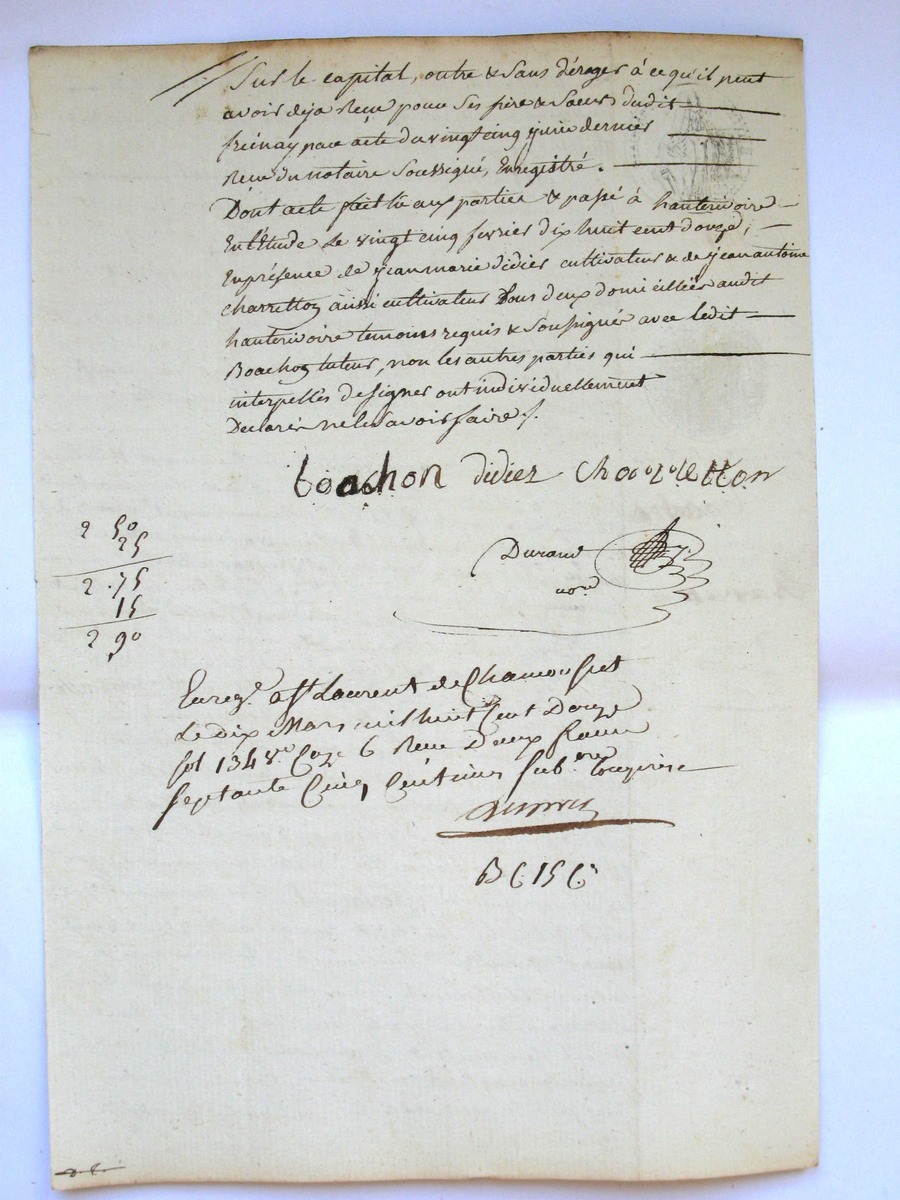 Sur le capital, outre & sans déroger à ce qu'il peut
avoir déja Reçu pour Ses frère & Soeurs dudit
frénay par acte du vingt cinq juin dernier
Reçu du notaire Soussigné, Enregistré.
Dont acte fait lu aux parties & passé à hauterivoire
En l'Etude le vingt cinq fevrier dix huit cent douze,
En présence de jean marie didier cultivateur & de jean antoine
charretton aussi cultivateur tous deux domiciliés audit
hauterivoire temoins requis & Soussignés avec ledit
Boachon tuteur, non les autres parties qui
interpellés de signer ont individuellement
Declaré ne le Savoir faire ./.
boachon didier Charretton
2 50
25
2.75
15
2 90
Durand
nore
Enregé a St Laurent de Chamousset
Le dix Mars mil huit Cent Douze
fol 134 Vo Caze 6 Reçu Deux francs
Septante Cinq Centimes Subon Comprise
B 6 15 6